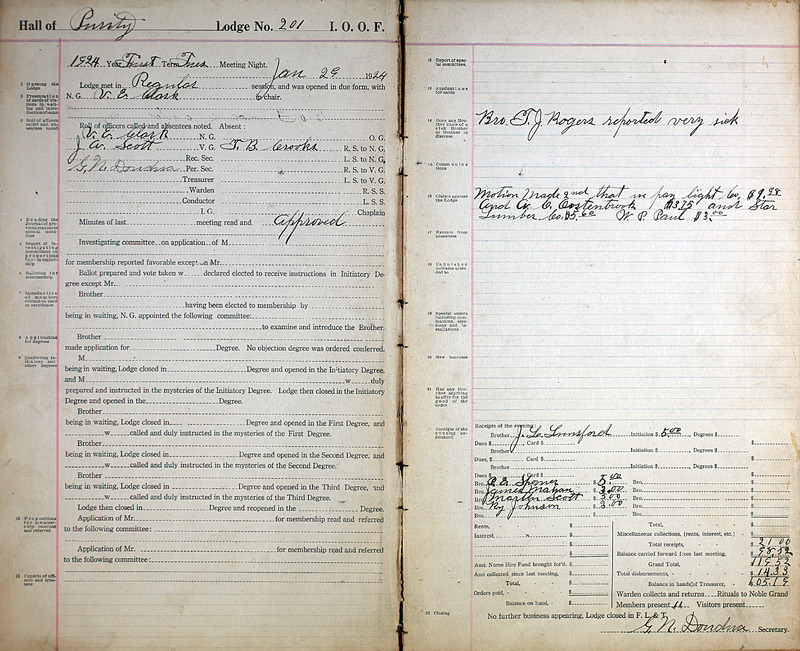 Hall of Purity Lodge No. 201 I. O. O. F.
1924 Year First Term Tues Meeting Night. Jan 29 1924
1 Opening the Lodge
Lodge met in Regular session, and was opened in due form, with
N. G. V. E. Clark chair.
Roll of officers called and absentees noted. Absent:
V. E. Clark N. G. O. G.
J. W. Scott V. G. T. B. Crooks R. S. to N. G.
Rec. Sec. L. S. to N. G.
G. N. Doudna Per. Sec. R. S. to V. G.
Treasurer L. S. to V. G.
Warden R. S. S.
Conductor L. S. S.
I. G. Chaplain
Minutes of last meeting read and approved
Investigating committee on application of M
for membership reported favorable except on Mr.
Ballot prepared and vote taken w declared elected to receive instructions in Initiatory De-
gree except Mr.
Brother
having been elected to membership by
being in waiting, N. G. appointed the following committee:
to examine and introduce the Brother.
Brother
made application for Degree. No objection degree was ordered conferred.
M
being in waiting, Lodge closed in Degree and opened in the Initiatory Degree,
and M w duly
prepared and instructed in the mysteries of the Initiatory Degree. Lodge then closed in the Initiatory
Degree and opened in the Degree.
Brother
being in waiting, Lodge closed in Degree and opened in the First Degree, and
w called and duly instructed in the mysteries of the First Degree.
Brother
being in waiting, Lodge closed in Degree and opened in the Second Degree, and
w called and duly instructed in the mysteries of the Second Degree.
Brother
being in waiting, Lodge closed in Degree and opened in the Third Degree, and
w called and duly instructed in the mysteries of the Third Degree.
Lodge then closed in Degree and reopened in the Degree.
Application of Mr. for membership read and referred
to the following committee:
Application of Mr. for membership read and referred
to the following committee:
12 Report of special committees.
13 Applications for cards
14 Does any Brother know of a sick Brother or Brother in distress
Bro. T. J. Rogers reported very sick
15 Communications
16 Claims against the Lodge
Motion Made 2nd that we pay light Co. $9.98
and Star
Lumber Co. $5.60 W. P. Paul $3.00
20 New business
21 Has any Brother anything to offer for the good of the order
Receipts of the evening announced
Receipts of the evening
Brother J. L. Lunsford Initiation $ 5.00 Degrees $
Dues $ Card $ $
Brother Initiation $ Degrees $
Dues, $ Card $ $
Brother Initiation $ Degrees $
Dues $ Card $ $
Bro. $ 5.00 Bro. $
Bro. James Mahan $ 3.00 Bro. $
Bro. Martin Scott $ 3.00 Bro. $
Bro. Ky Johnson $ 3.00 Bro. $
Bro. $ Bro. $
Rents, $ Total, $
Interest, $ Miscellaneous collections, (rents, interest, etc.) $
Total receipts, $ 21 00
Balance carried forward from last meeting, $ 98.52
Amt. Nurse Hire Fund brought for'd. $ Grand Total, $ 119 52
Amt collected since last meeting, $ Total disbursements, $ 14.33
Total, $ Balance in hands of Treasurer, $ 105.19
Orders paid, $ Warden collects and returns Rituals to Noble Grand
Balance on hand, $ Members present 11 Visitors present
22 Closing
No further business appearing, Lodge closed in F. L. & T.
G. N. Doudna Secretary.